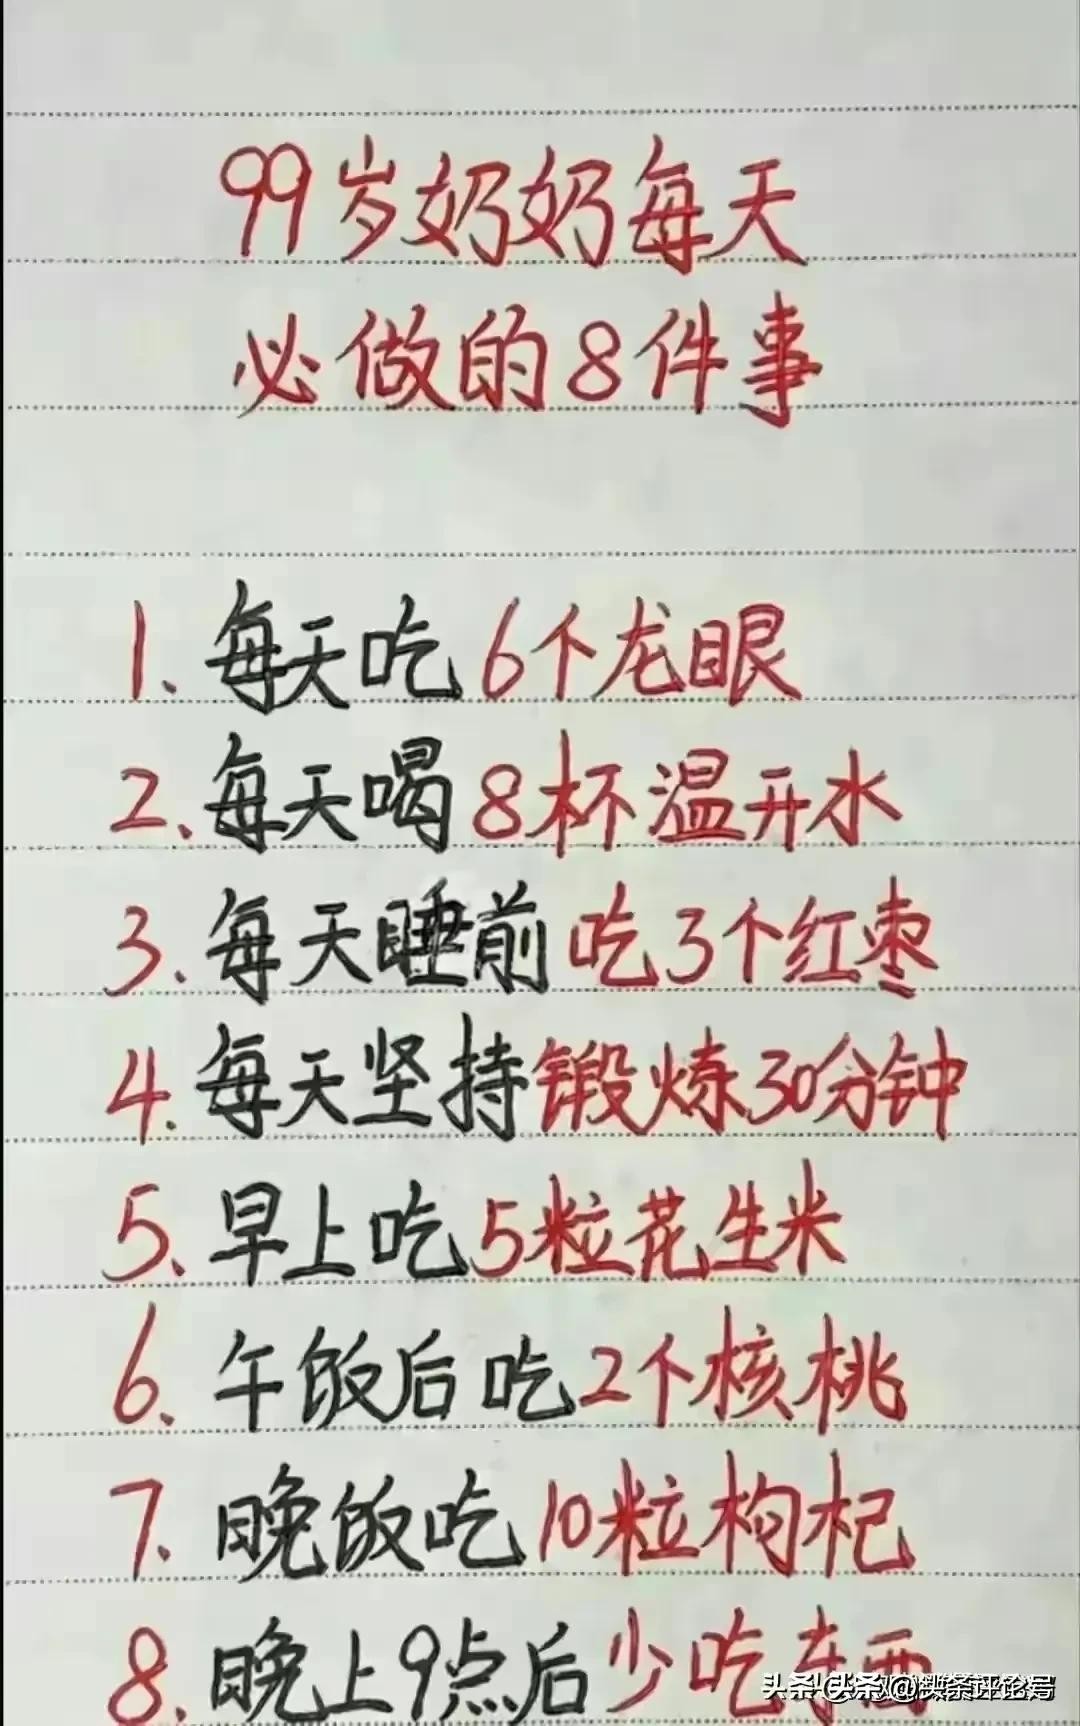 99岁奶奶每天
必做的8件事
1、每天吃6个龙眼
2、每天喝8杯温开水
3、每天睡前吃3个红枣
4、每天坚持锻炼30分钟
5、早上吃5粒花生米
6、午饭后吃2个核桃
7、晚饭吃10粒枸杞
8、晚上9点后少吃东西